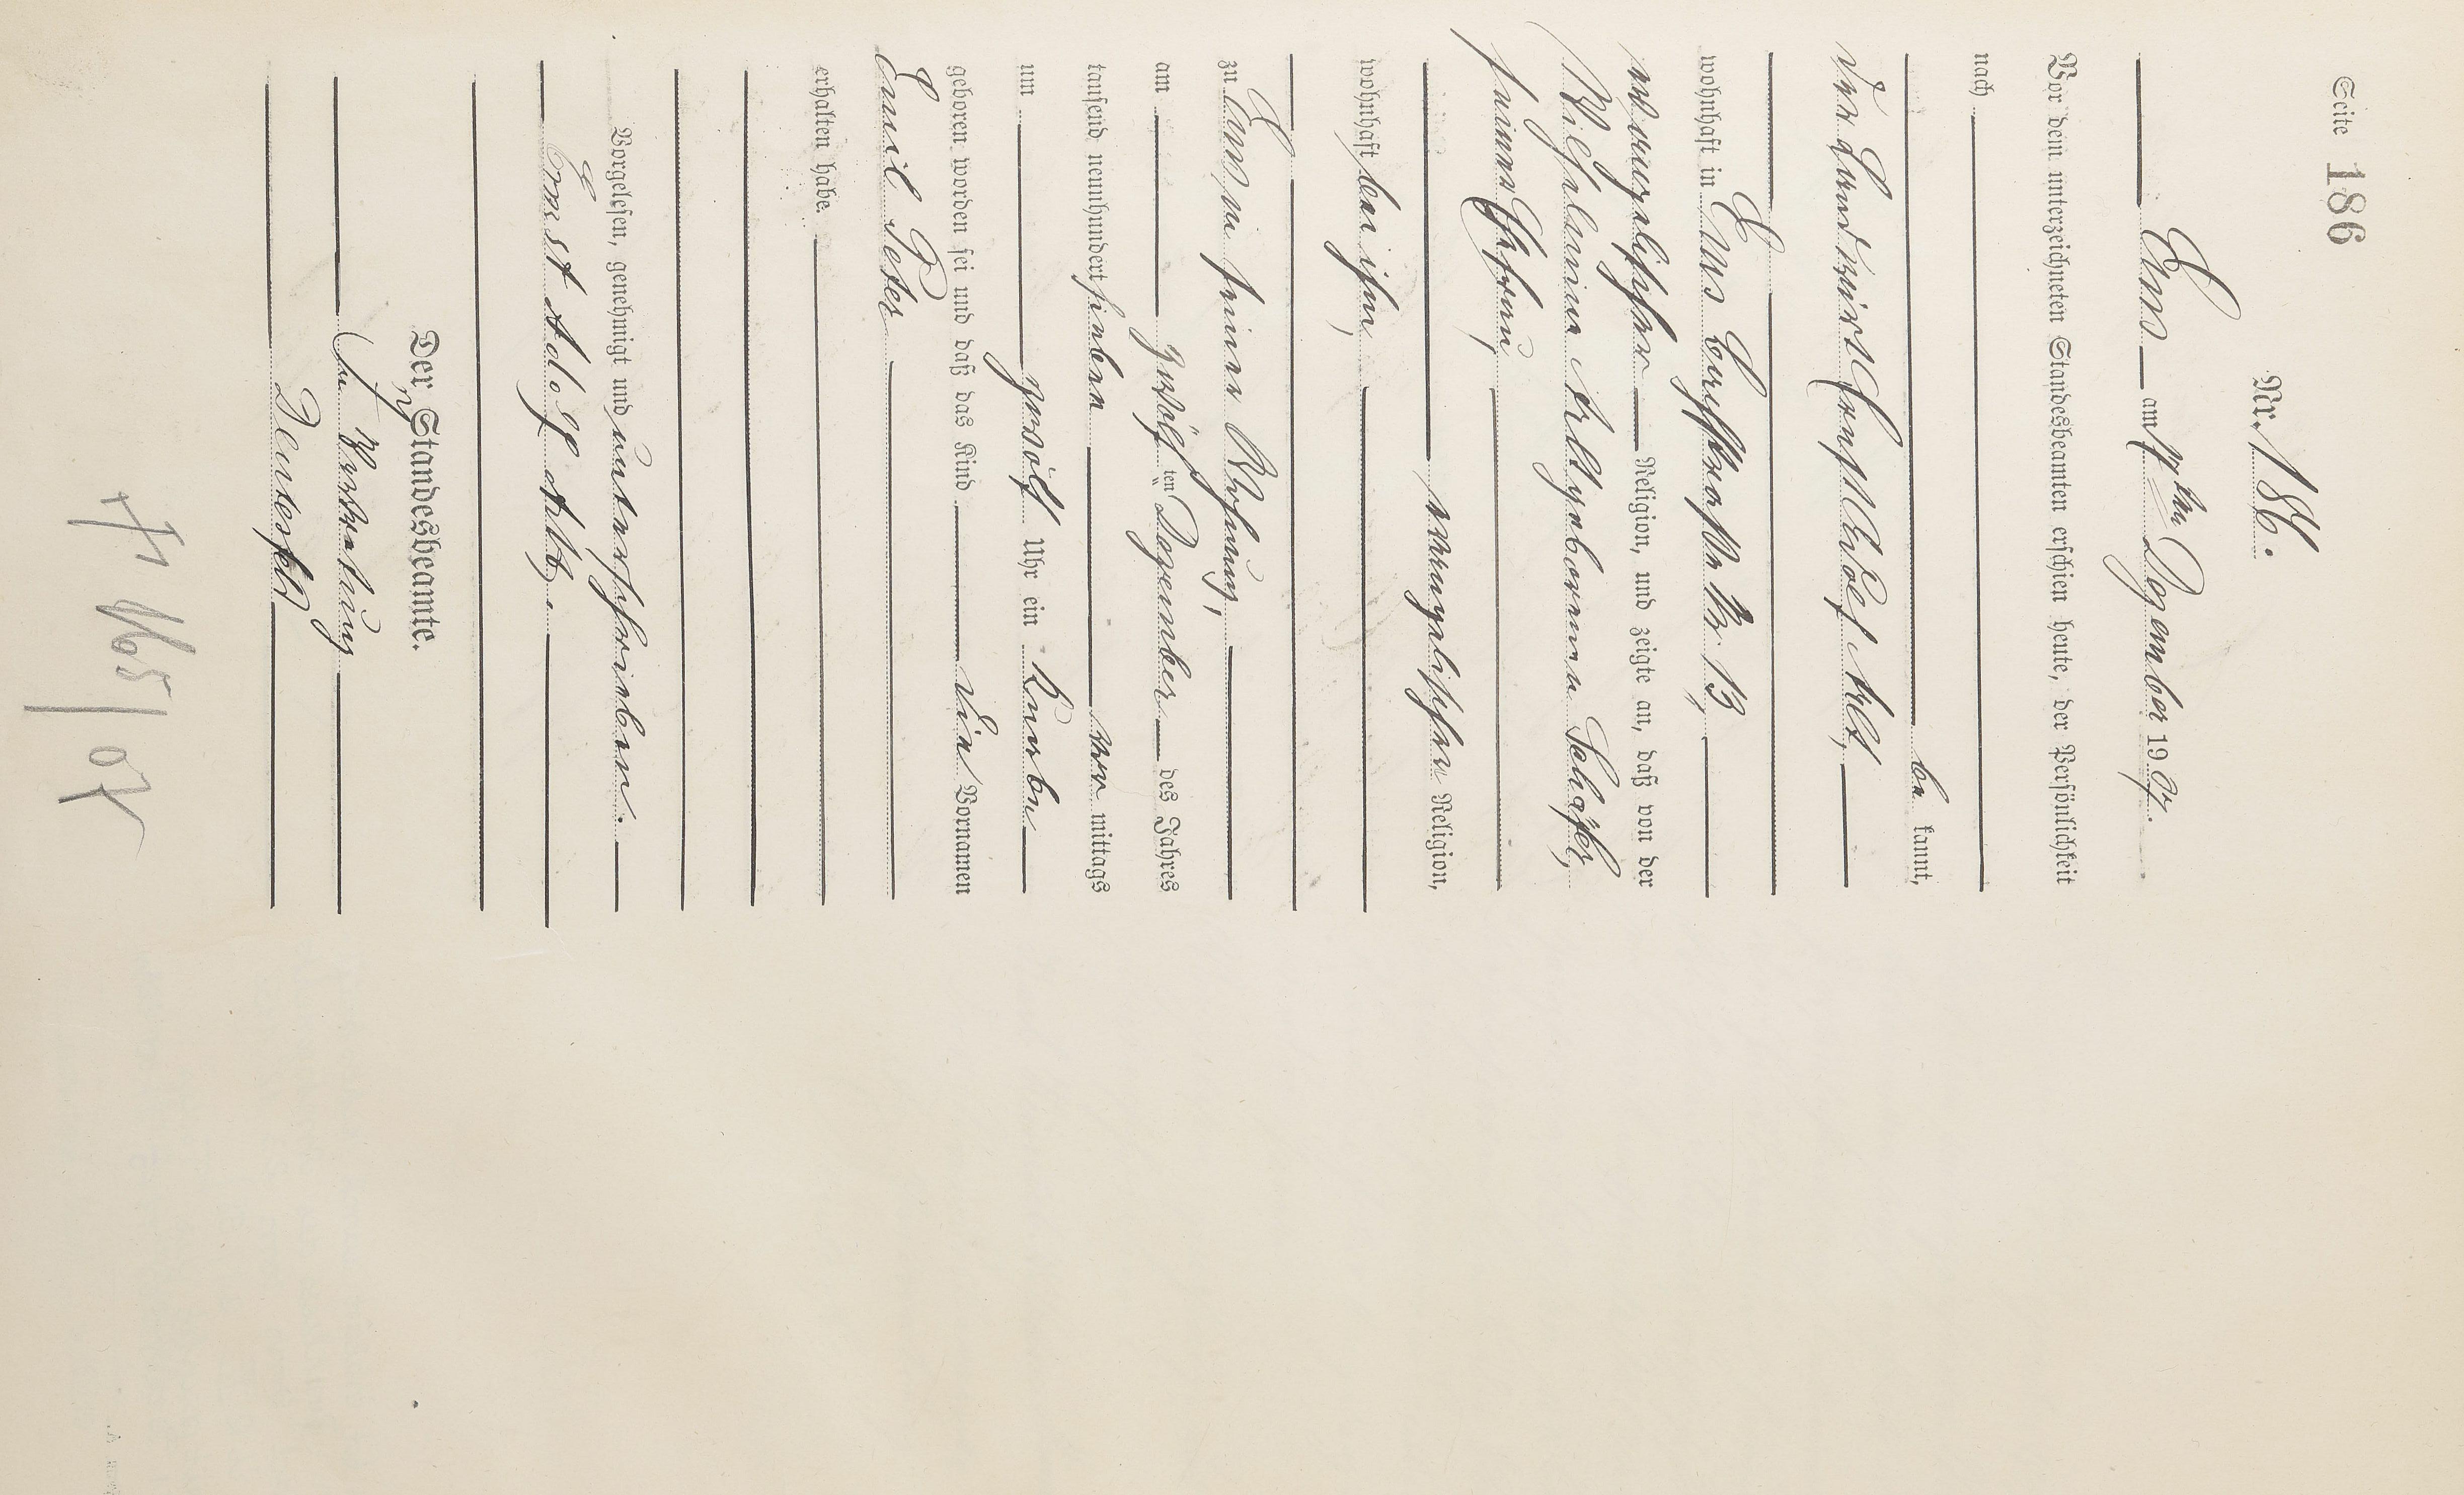 Seite 186
Nr. 186.
Ems am 17ten Dezember 1907.
Vor dem unterzeichneten Standesbeamten erschien heute, der Persönlichkeit
nach
be kannt,
der Landwirt Ernst Adolf Abt,
wohnhaft in Ems Nr. 13,
evangelischer Religion, und zeigte an, daß von der
Wilhelmine Abt geborenen Schäfer,
seiner Ehefrau,
evangelischen Religion,
wohnhaft bei ihm,
zu Ems in seiner Wohnung,
am zwölf ten Dezember des Jahres
tausend neunhundert sieben vor mittags
um zwölf Uhr ein Knabe
geboren worden sei und daß das Kind die Vornamen
Emil Peter
erhalten habe.
Vorgelesen, genehmigt und unterschrieben.
Ernst Adolf Abt.
Der Standesbeamte.
In Vertretung